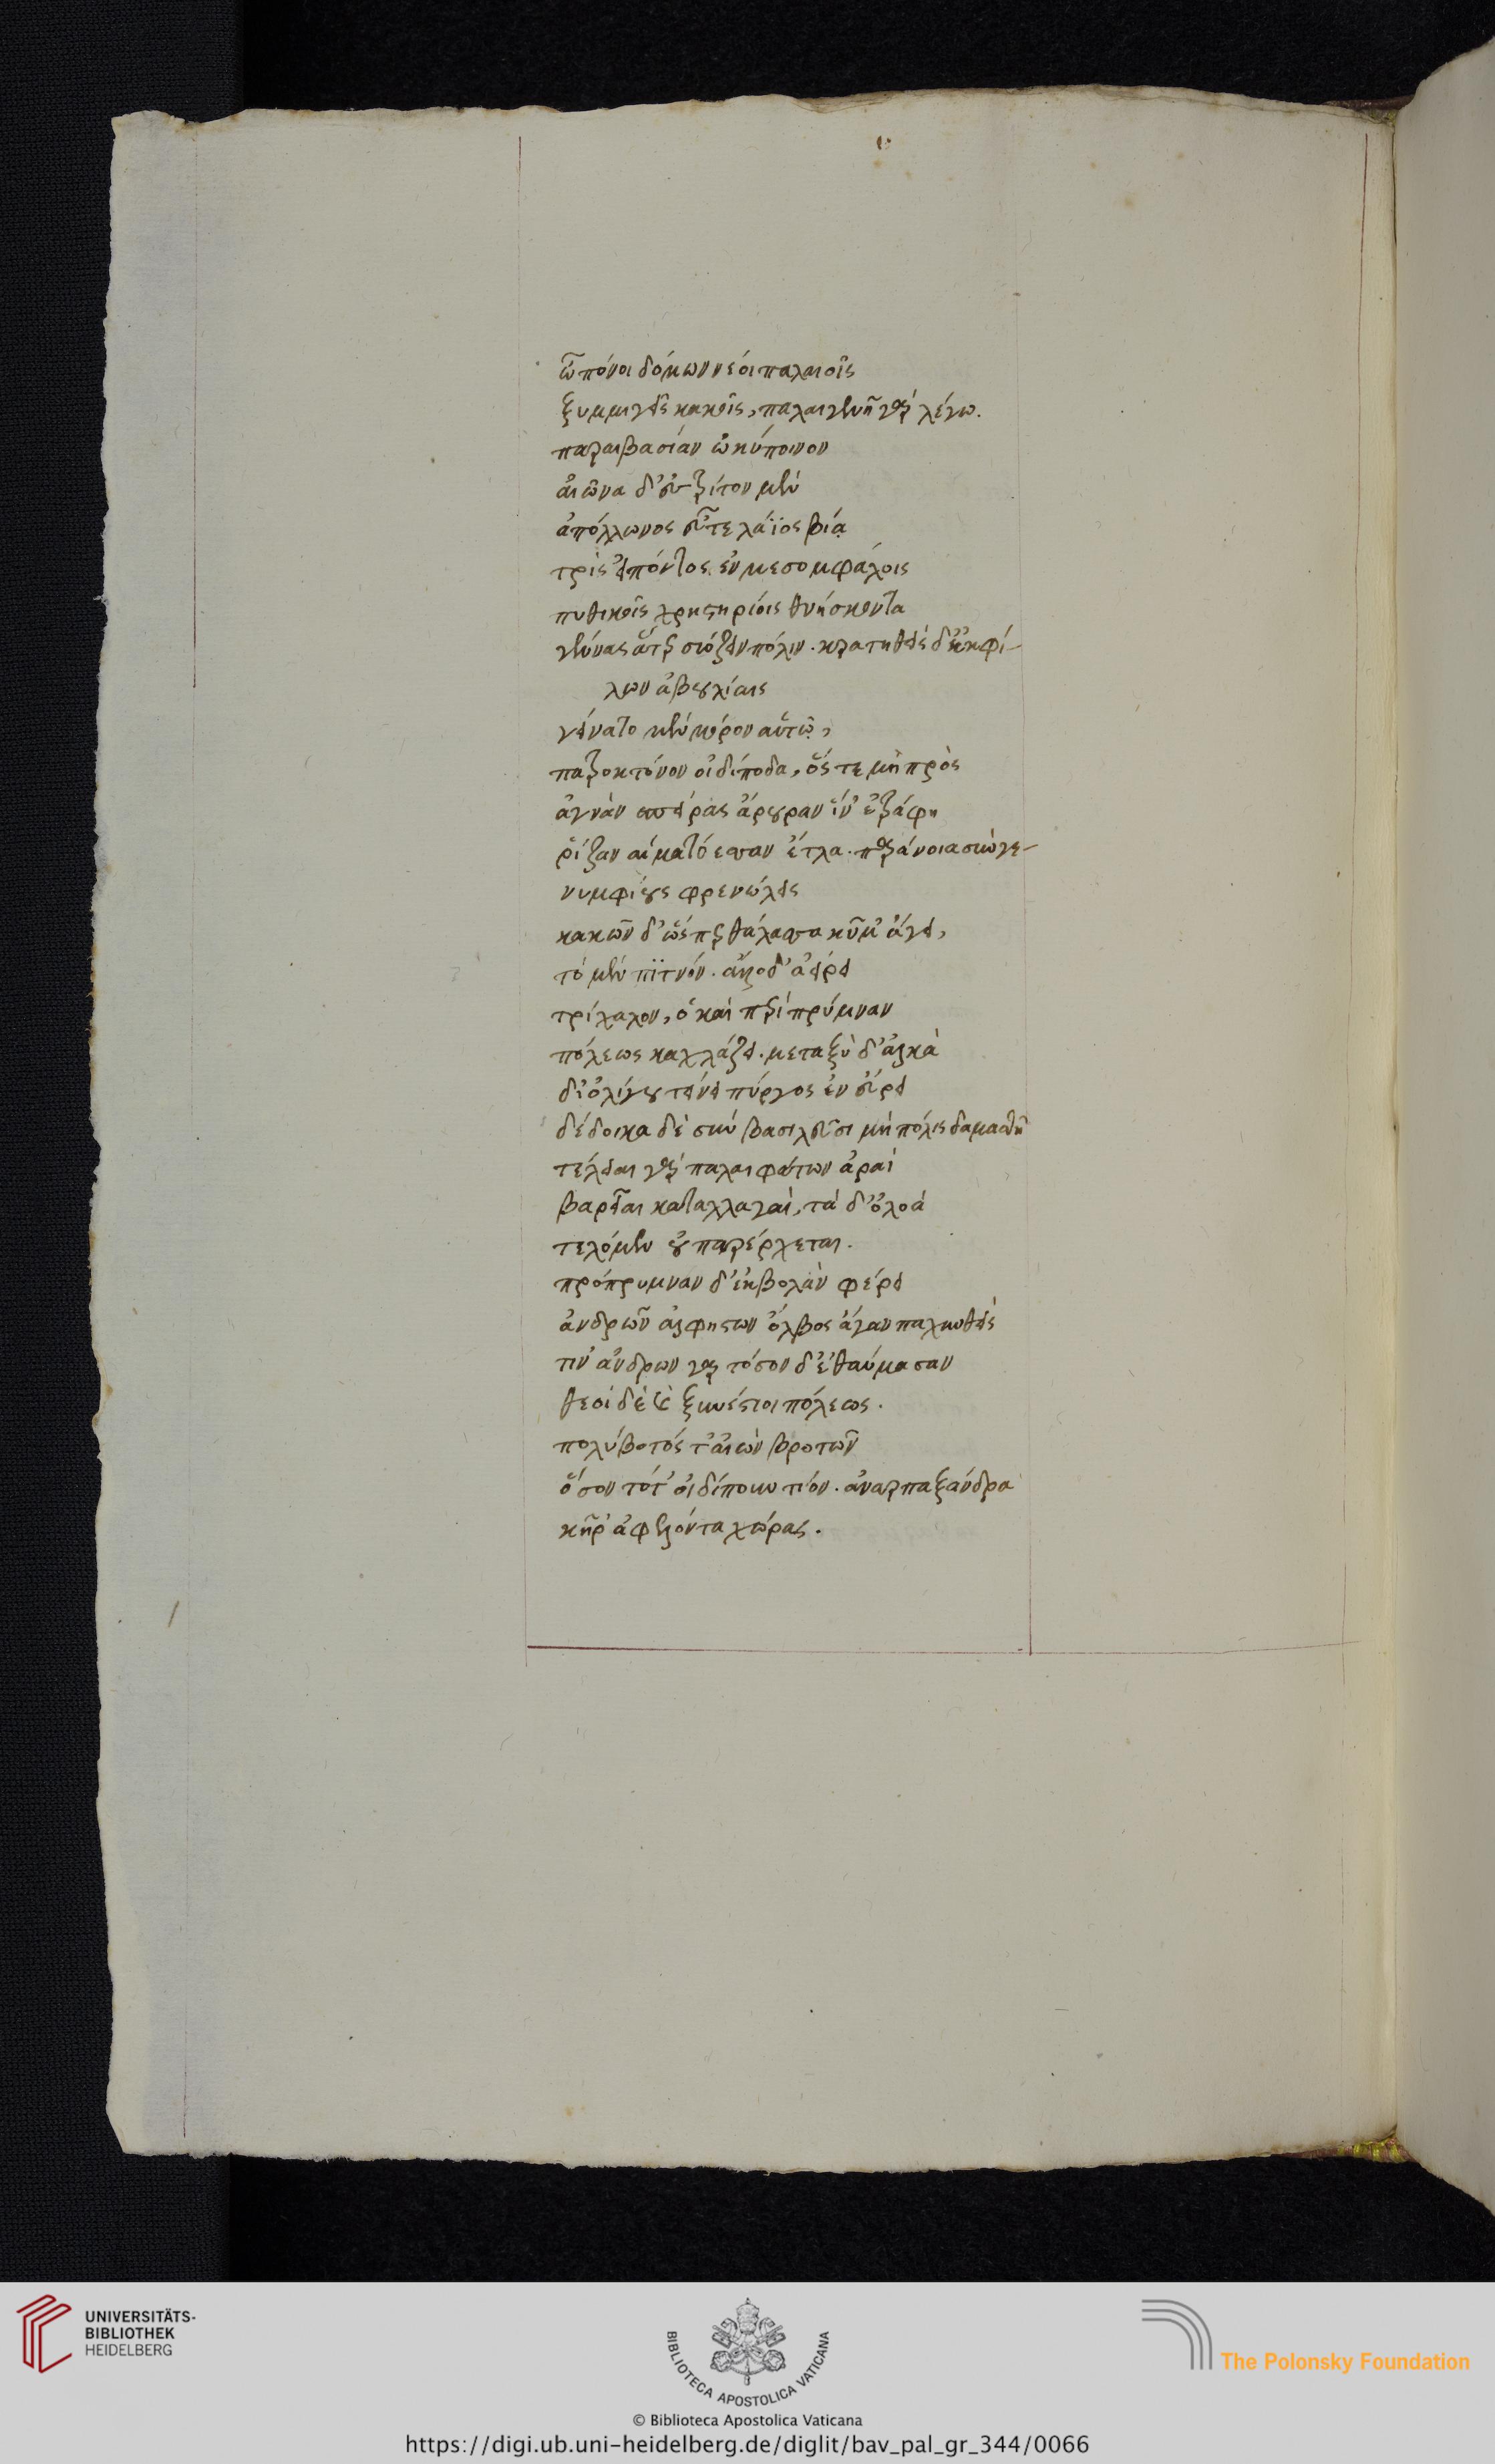 ὦ πόνοι δόμων νέοι παλαιοῖς
ξυμμιγεῖς κακοῖς, παλαιγενῆ γὰρ λέγω.
παραιβασίαν ὠκύποινον
αἰῶνα δ' ἐς τρίτον μέν
ἀπόλλωνος εὖτε λάϊος βίᾳ
τρὶς εἰπόντος ἐν μεσομφάλοις
πυθικοῖς χρηστηρίοις θνήσκοντα
γένυας ἄτερ σώζειν πόλιν. κρατηθεὶς δ' ἐκ φί-
λων ἀβουλίαις
γείνατο μὲν μόρον αὑτῷ,
πατροκτόνον οἰδίποδα, ὅς τε μὴ πρὸς
ἁγνὰν σπείρας ἄρουραν ἵν' ἐτράφη
ῥίζαν αἱματόεσσαν ἔτλα. παράνοια συνῆγε
νυμφίους φρενώλεις
κακῶν δ' ὥσπερ θάλασσα κῦμ' ἄγει,
τὸ μὲν πίτνον. ἄλλο δ' ἀείρει
τρίχαλον, ὃ καὶ περὶ πρύμναν
πόλεως καχλάζει. μεταξὺ δ' ἀλκὰ
δι' ὀλίγου τείνει πύργος ἐν εὔρει
δέδοικα δὲ σὺν βασιλεῦσι μὴ πόλις δαμασθῇ
τέλειαι γὰρ παλαιφάτων ἀραὶ
βαρεῖαι καταλλαγαὶ, τὰ δ' ὀλοὰ
τελόμεν' οὐ παρέρχεται.
πρόπρυμναν δ' ἐκβολὰν φέρει
ἀνδρῶν ἀλφηστῶν ὄλβος ἄγαν παχυνθεὶς
τίν' ἀνδρῶν γὰρ τόσον δ' ἐθαύμασαν
θεοὶ δὲ καὶ ξυνέστιοι πόλεως.
πολύβοτός τ' αἰὼν βροτῶν
ὅσον τότ' οἰδίπουν τίον. ἀναρπαξάνδρα
κῆρ' ἀφελόντα χώρας.
UNIVERSITÄTS-
BIBLIOTHEK
HEIDELBERG
BIBLIOTECA APOSTOLICA VATICANA
The Polonsky Foundation
© Biblioteca Apostolica Vaticana
https://digi.ub.uni-heidelberg.de/diglit/bav_pal_gr_344/0066